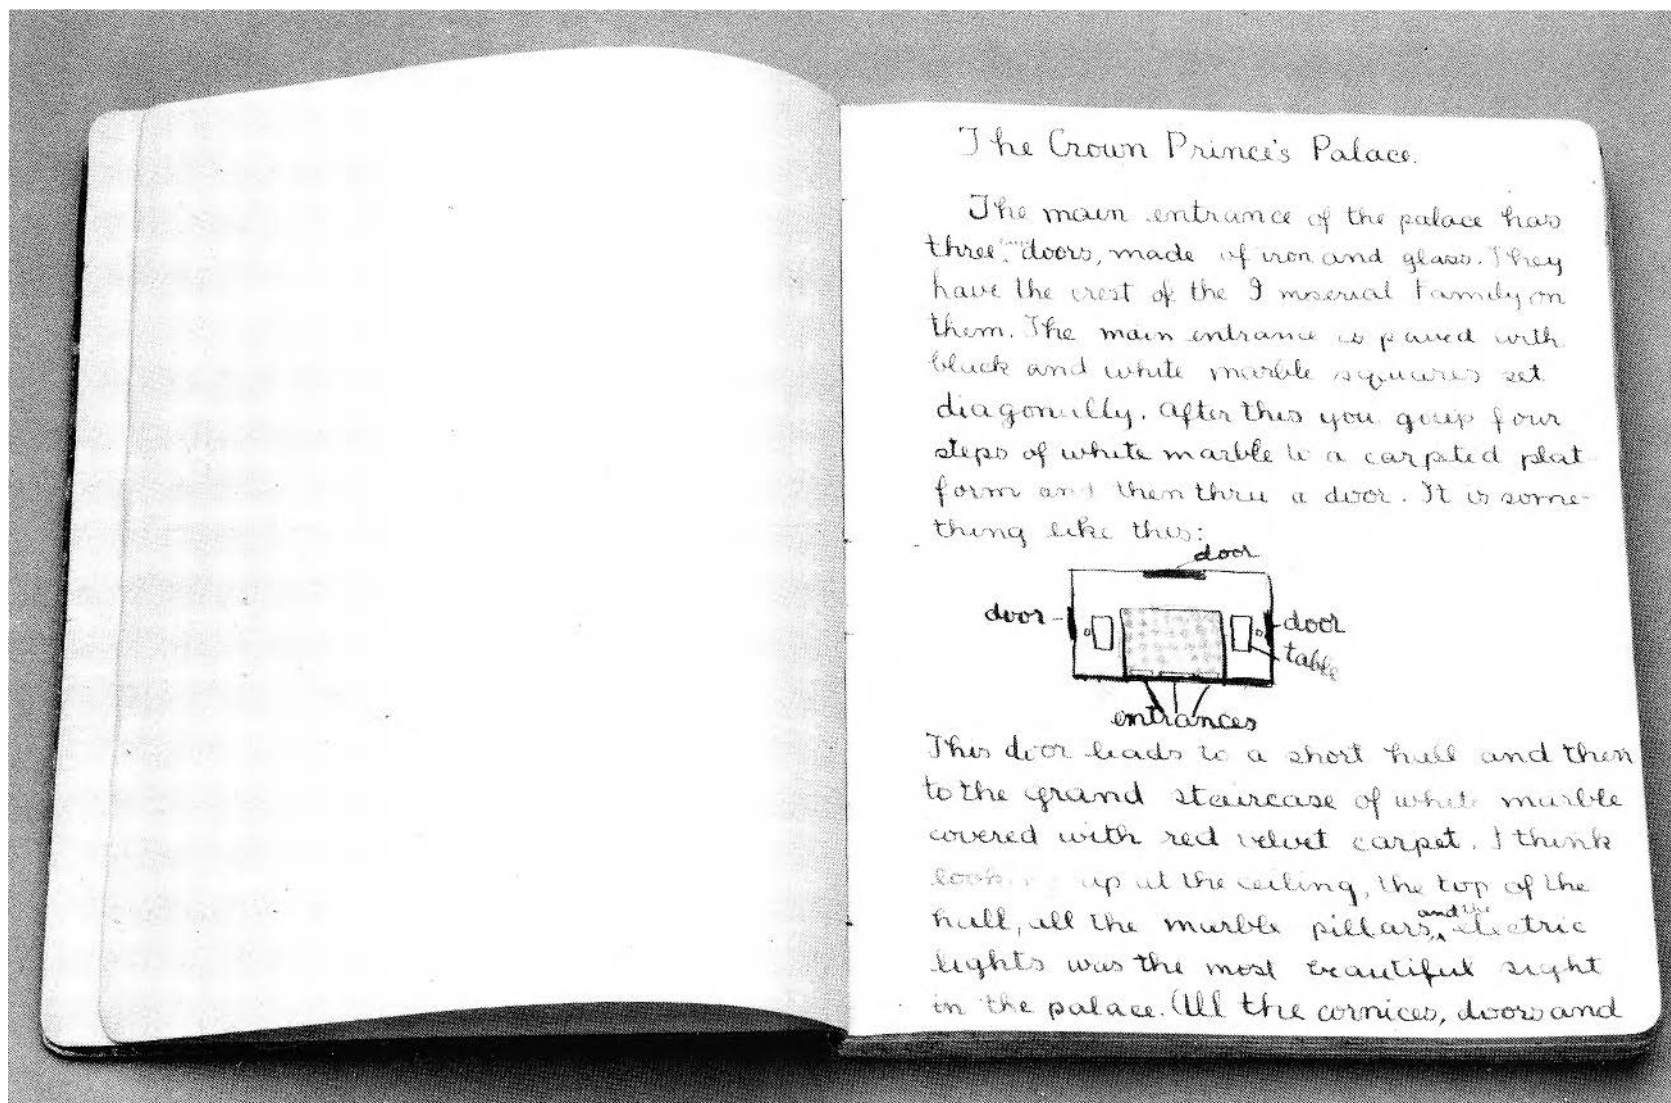 The Crown Prince's Palace.
The main entrance of the palace has
three doors, made of iron and glass. They
have the crest of the Imperial Family on
them. The main entrance is paved with
black and white marble squares set
diagonally. After this you go up four
steps of white marble to a carpted plat-
form and then thru a door. It is some-
thing like this:
door
door
door
table
entrances
This door leads to a short hall and then
to the grand staircase of white marble
covered with red velvet carpet. I think
looking up at the ceiling, the top of the
hall, all the marble pillars, and the electric
lights was the most beautiful sight
in the palace. All the cornices, doors and